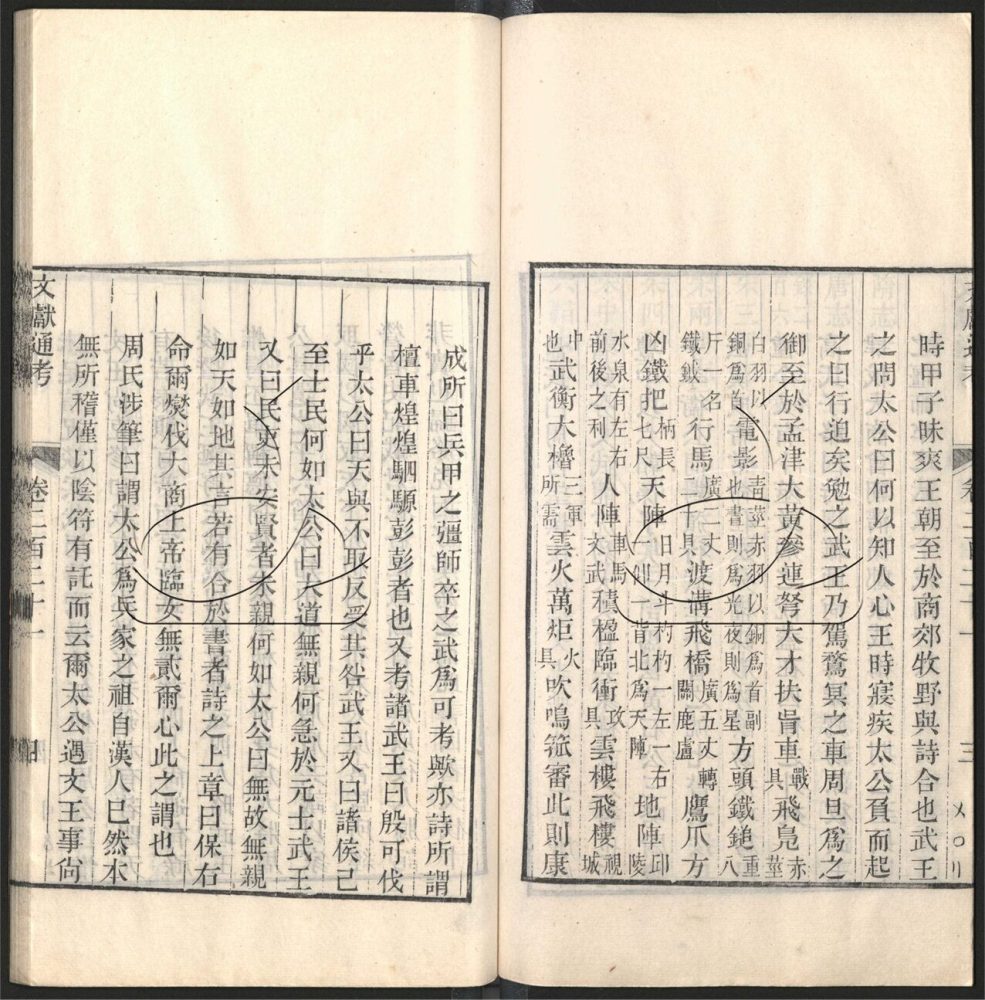 時甲子昧爽王朝至於商郊牧野與詩合也武王
之問太公曰何以知人心王時寢疾太公負而起
之曰行迫矣勉之武王乃駕騖冥之車周旦爲之
御至於孟津大黃參連弩大才扶胥車戰具飛鳧赤莖
白羽以銅爲首電影青莖赤羽以銅爲首副也晝則爲光夜則爲星方頭鐵鎚重八
斤一名鐵鉞行馬廣二丈二十具渡溝飛橋廣五丈轉關鹿盧鷹爪方
凶鐵把柄長七尺天陣日月斗杓杓一左一右一仰一背北爲天陣地陣邱陵
水泉有左右前後之利人陣車馬文武積楹臨衝攻具雲樓飛樓視城
中也武衡大櫓三軍所需雲火萬炬火具吹鳴箛審此則康
成所曰兵甲之彊師卒之武爲可考歟亦詩所謂
檀車煌煌駟騵彭彭者也又考諸武王曰殷可伐
乎太公曰天與不取反受其咎武王又曰諸侯己
至士民何如太公曰大道無親何急於元士武王
又曰民吏未安賢者未親何如太公曰無故無親
如天如地其言若有合於書者詩之上章曰保右
命爾燮伐大商上帝臨女無貳爾心此之謂也
周氏涉筆曰謂太公爲兵家之祖自漢人已然本
無所稽僅以陰符有託而云爾太公遇文王事尙
文獻通考
卷二百二十一